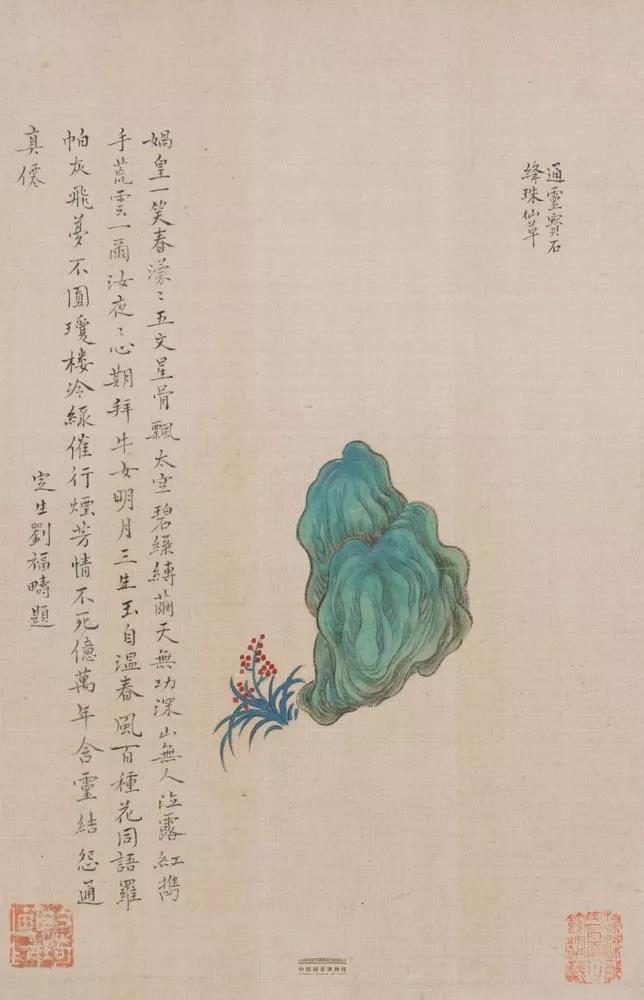 通靈寶石
絳珠仙草
媧皇一笑春濛〻五文星骨飄太空碧縧縛繭天無功深山無人泣露紅攜
手荒雲一爾汝夜〻心期拜牛女明月三生玉自溫春風百種花同語羅
帕灰飛夢不圓瓊楼冷綠催行煙芳情不死億萬年含靈結怨通
真僊
定生劉福疇題
中国国家博物馆